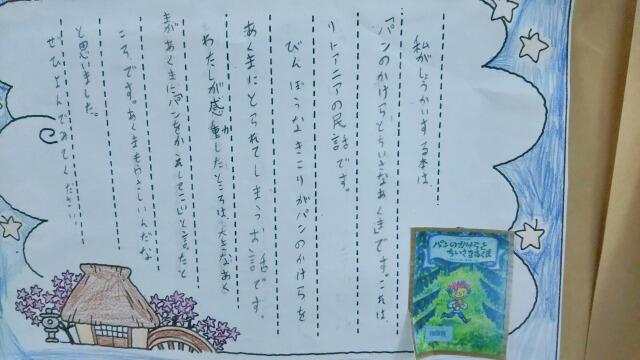 私がしょうかいする本は、
「パンのかけらとちいさなあくま」です。これは、
リトアニアの民話です。
びんぼうなきこりがパンのかけらを
あくまにとられてしまうお話です。
わたしが感動したところは、大きなあく
まがあくまに「パンをかえしてこい」と言ったと
ころです。あくまもやさしいんだな
と思いました。
ぜひよんでみてください。
パンのかけらと
ちいさなあくま